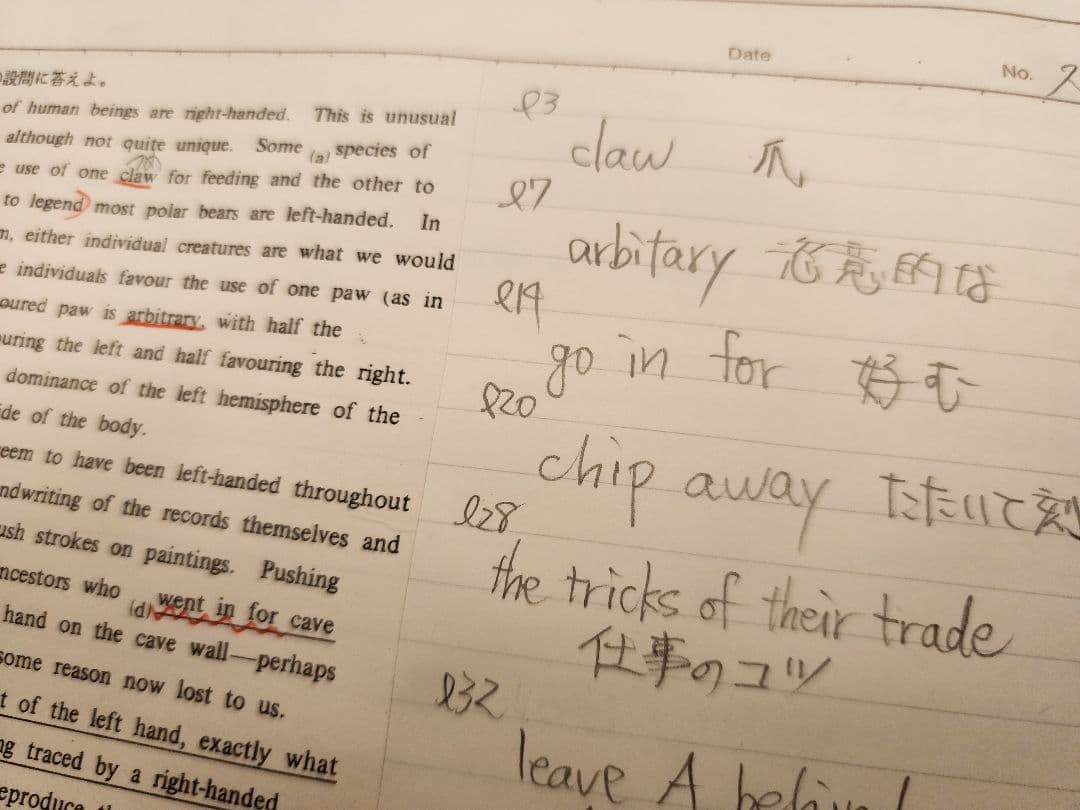 設問に答えよ。
of human beings are right-handed. This is unusual
although not quite unique. Some (a) species of
use of one claw for feeding and the other to
to legend most polar bears are left-handed. In
either individual creatures are what we would
individuals favour the use of one paw (as in
paw is arbitrary, with half the
the left and half favouring the right.
dominance of the left hemisphere of the
of the body.
to have been left-handed throughout
of the records themselves and
strokes on paintings. Pushing
who (d) went in for cave
hand on the cave wall—perhaps
some reason now lost to us.
of the left hand, exactly what
traced by a right-handed
Date
No. 2
l3
claw 爪
l7
arbitary 恣意的な
l19
go in for 好む
l20
chip away たたいて刻
l28
the tricks of their trade
仕事のコツ
l32
leave A